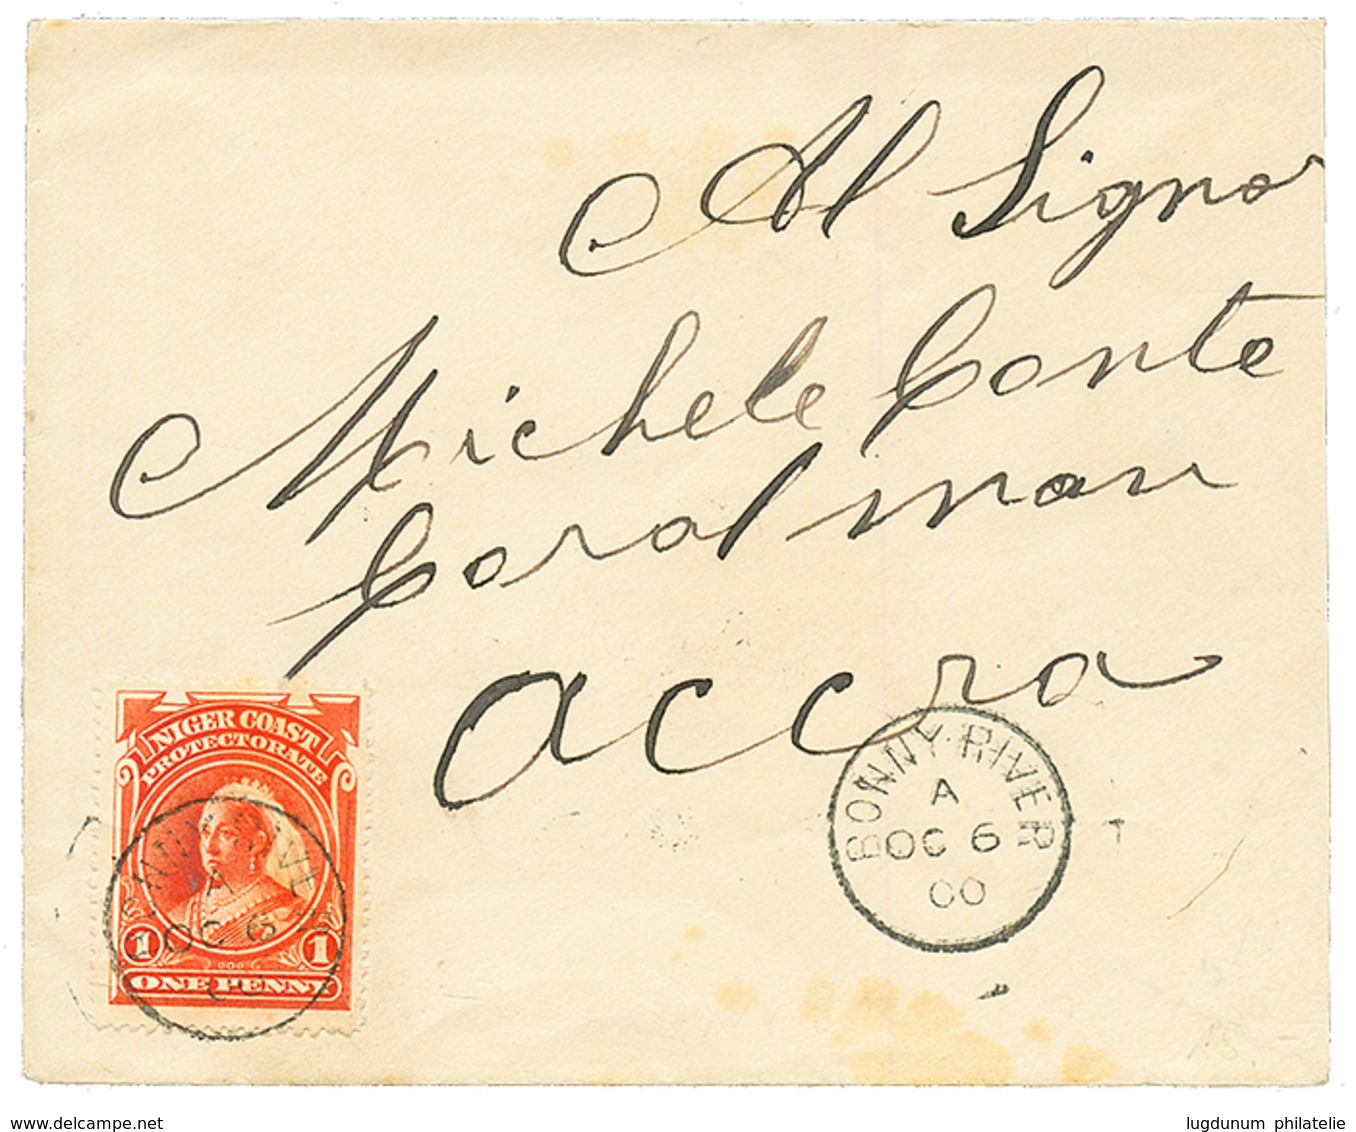 Al Signor
Michele Conte
Coralman
accra
NIGER COAST
PROTECTORATE
1 1
ONE PENNY
A
OC 6
BONNY·RIVER
A
OC 6
00
www.delcampe.net
lugdunum philatelie